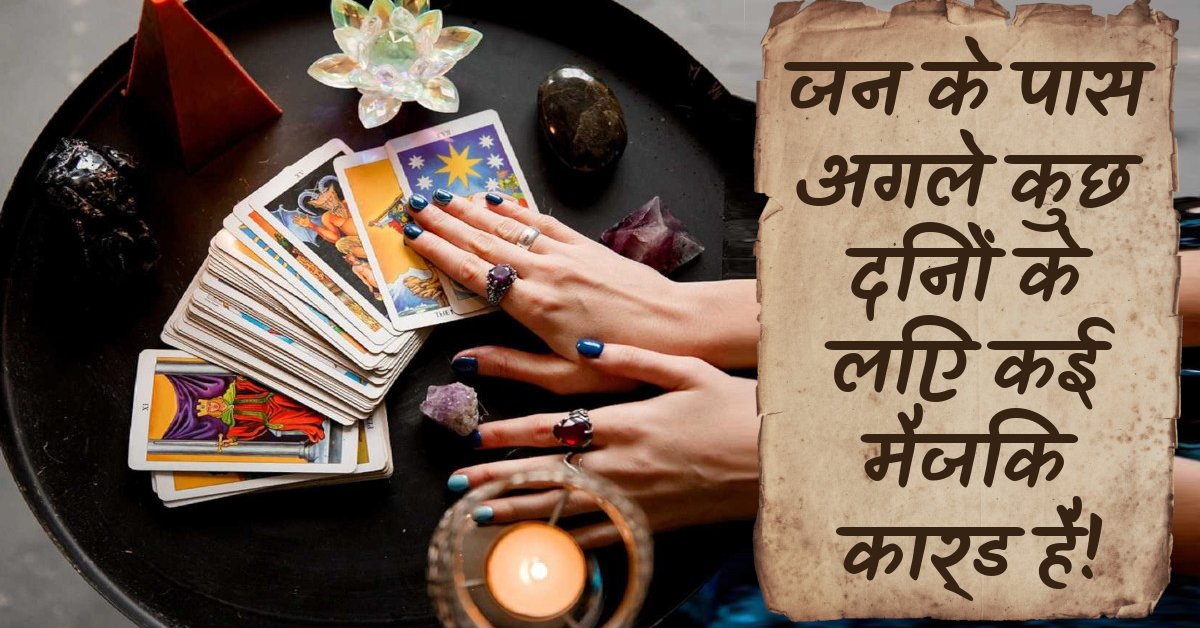 जन के पास
अगले कुछ
दनिों के
लएि कई
मैजकि
कार्‌ड है!
XV